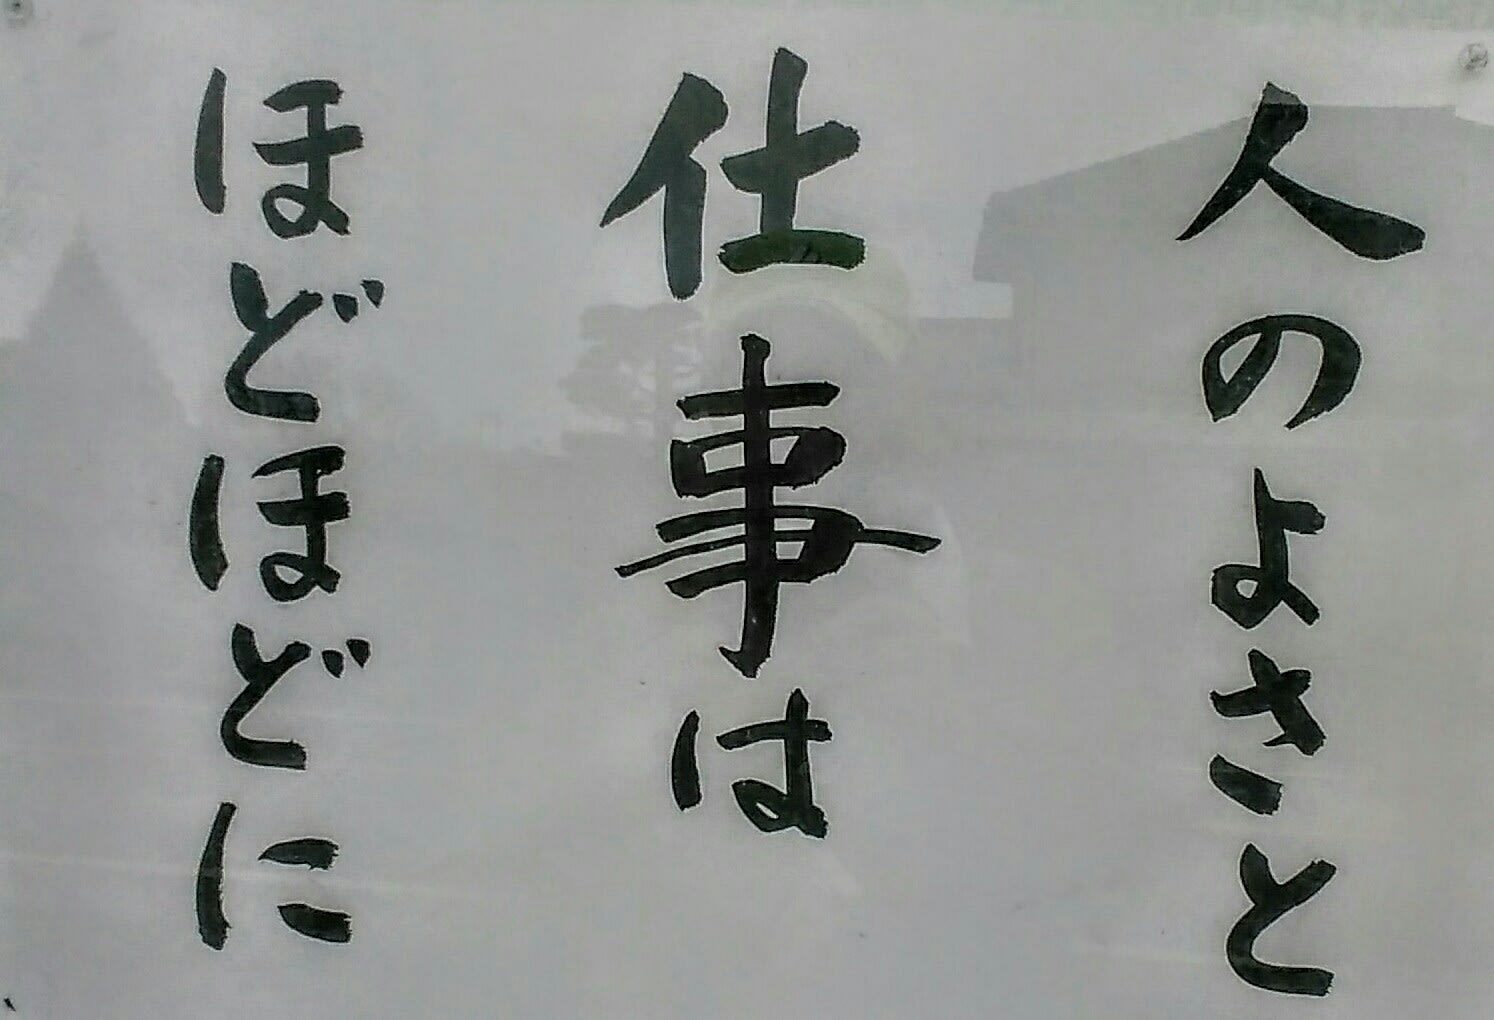 人のよさと
仕事は
ほどほどに